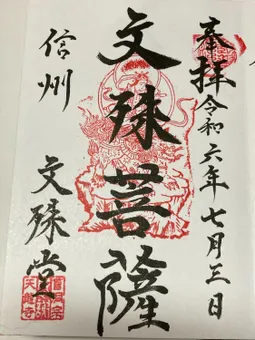 奉拝令和六年七月三日
文殊菩薩
信州
文殊堂